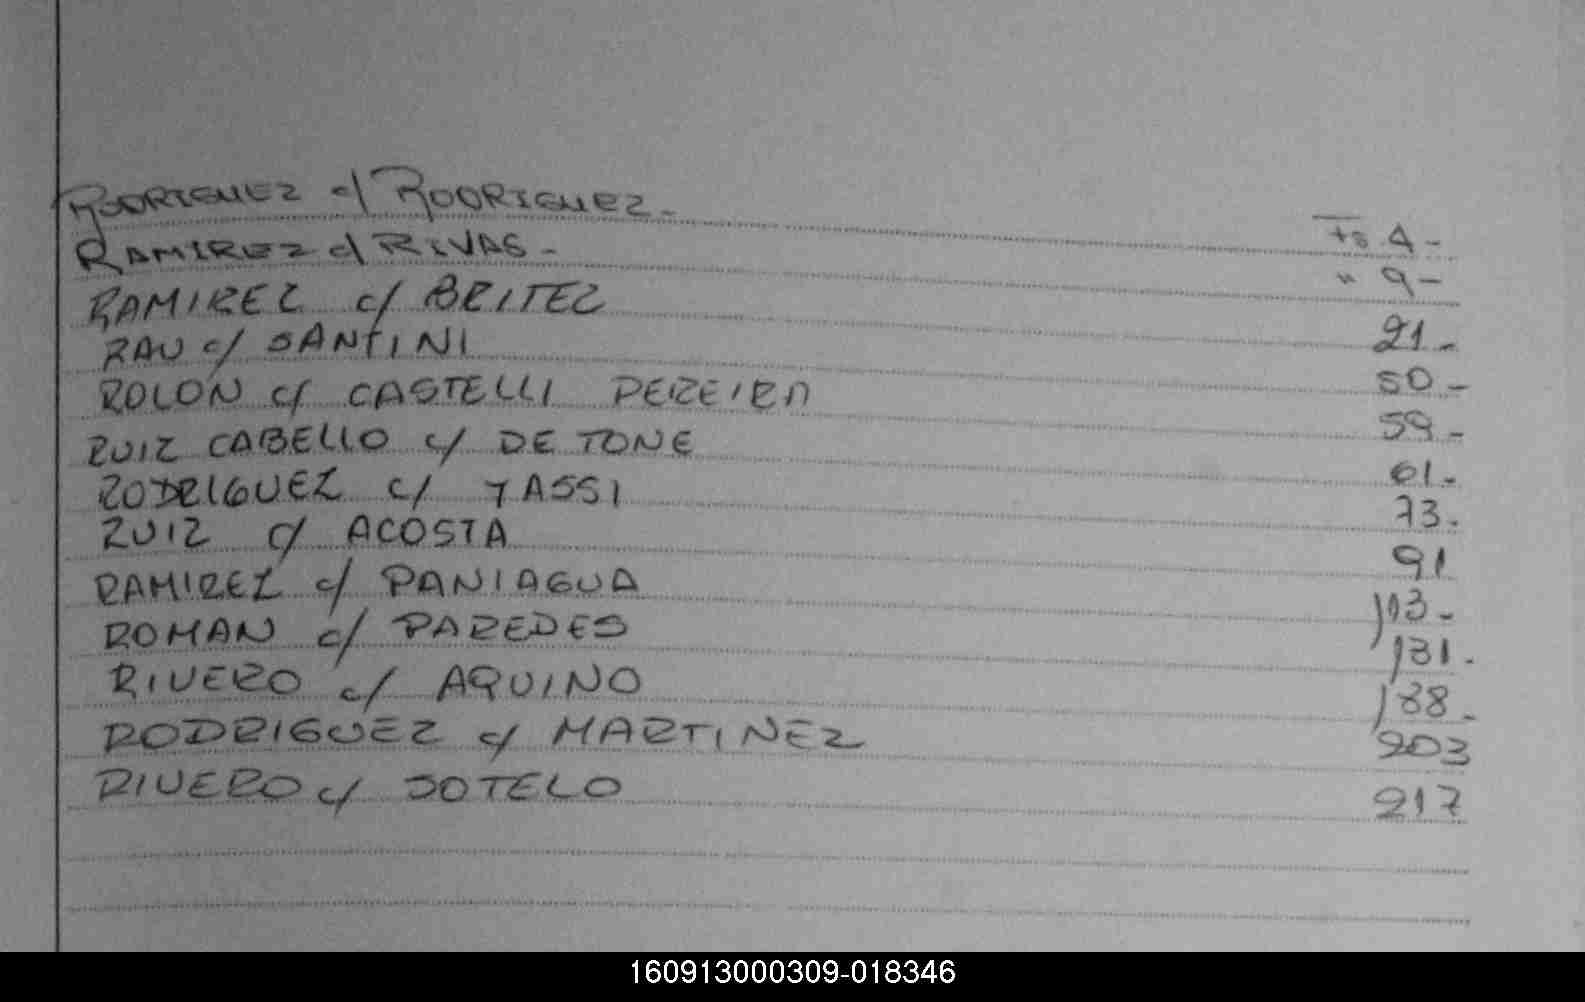 RODRIGUEZ c/ RODRIGUEZ.- Fs 4-
RAMIREZ c/ RIVAS- " 9-
RAMIREZ c/ BRITEZ 21-
RAU c/ SANTINI 50-
ROLON c/ CASTELLI PEREIRA 59-
RUIZ CABELLO c/ DE TONE 61-
RODRIGUEZ c/ TASSI 73.
RUIZ c/ ACOSTA 91
RAMIREZ c/ PANIAGUA 113-
ROMAN c/ PAREDES 131.
RIVERO c/ AQUINO 188-
RODRIGUEZ c/ MARTINEZ 203
RIVERO c/ SOTELO 217
160913000309-018346